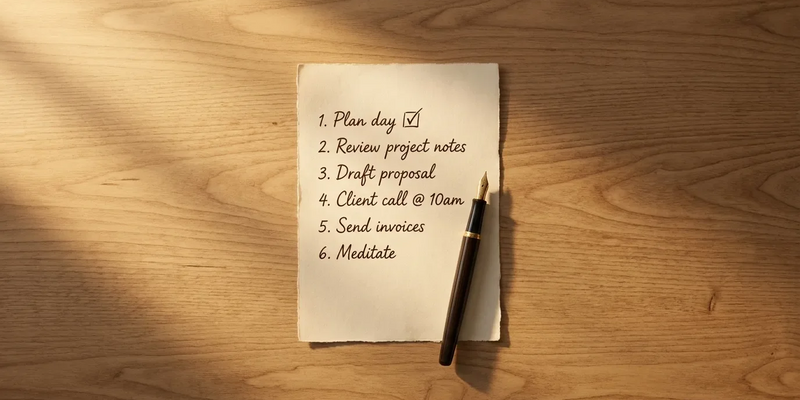 1. Plan day ☑
2. Review project notes
3. Draft proposal
4. Client call @ 10am
5. Send invoices
6. Meditate